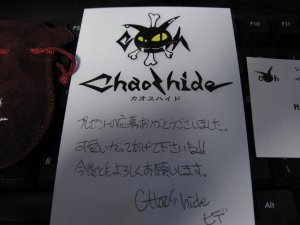 c h
Chaoshide
カオスハイド
プレゼントの応募ありがとうございました。
可愛いがってあげて下さいね!!
今後ともよろしくお願いします。
Chaos hide
ヒデ
F5
Alt